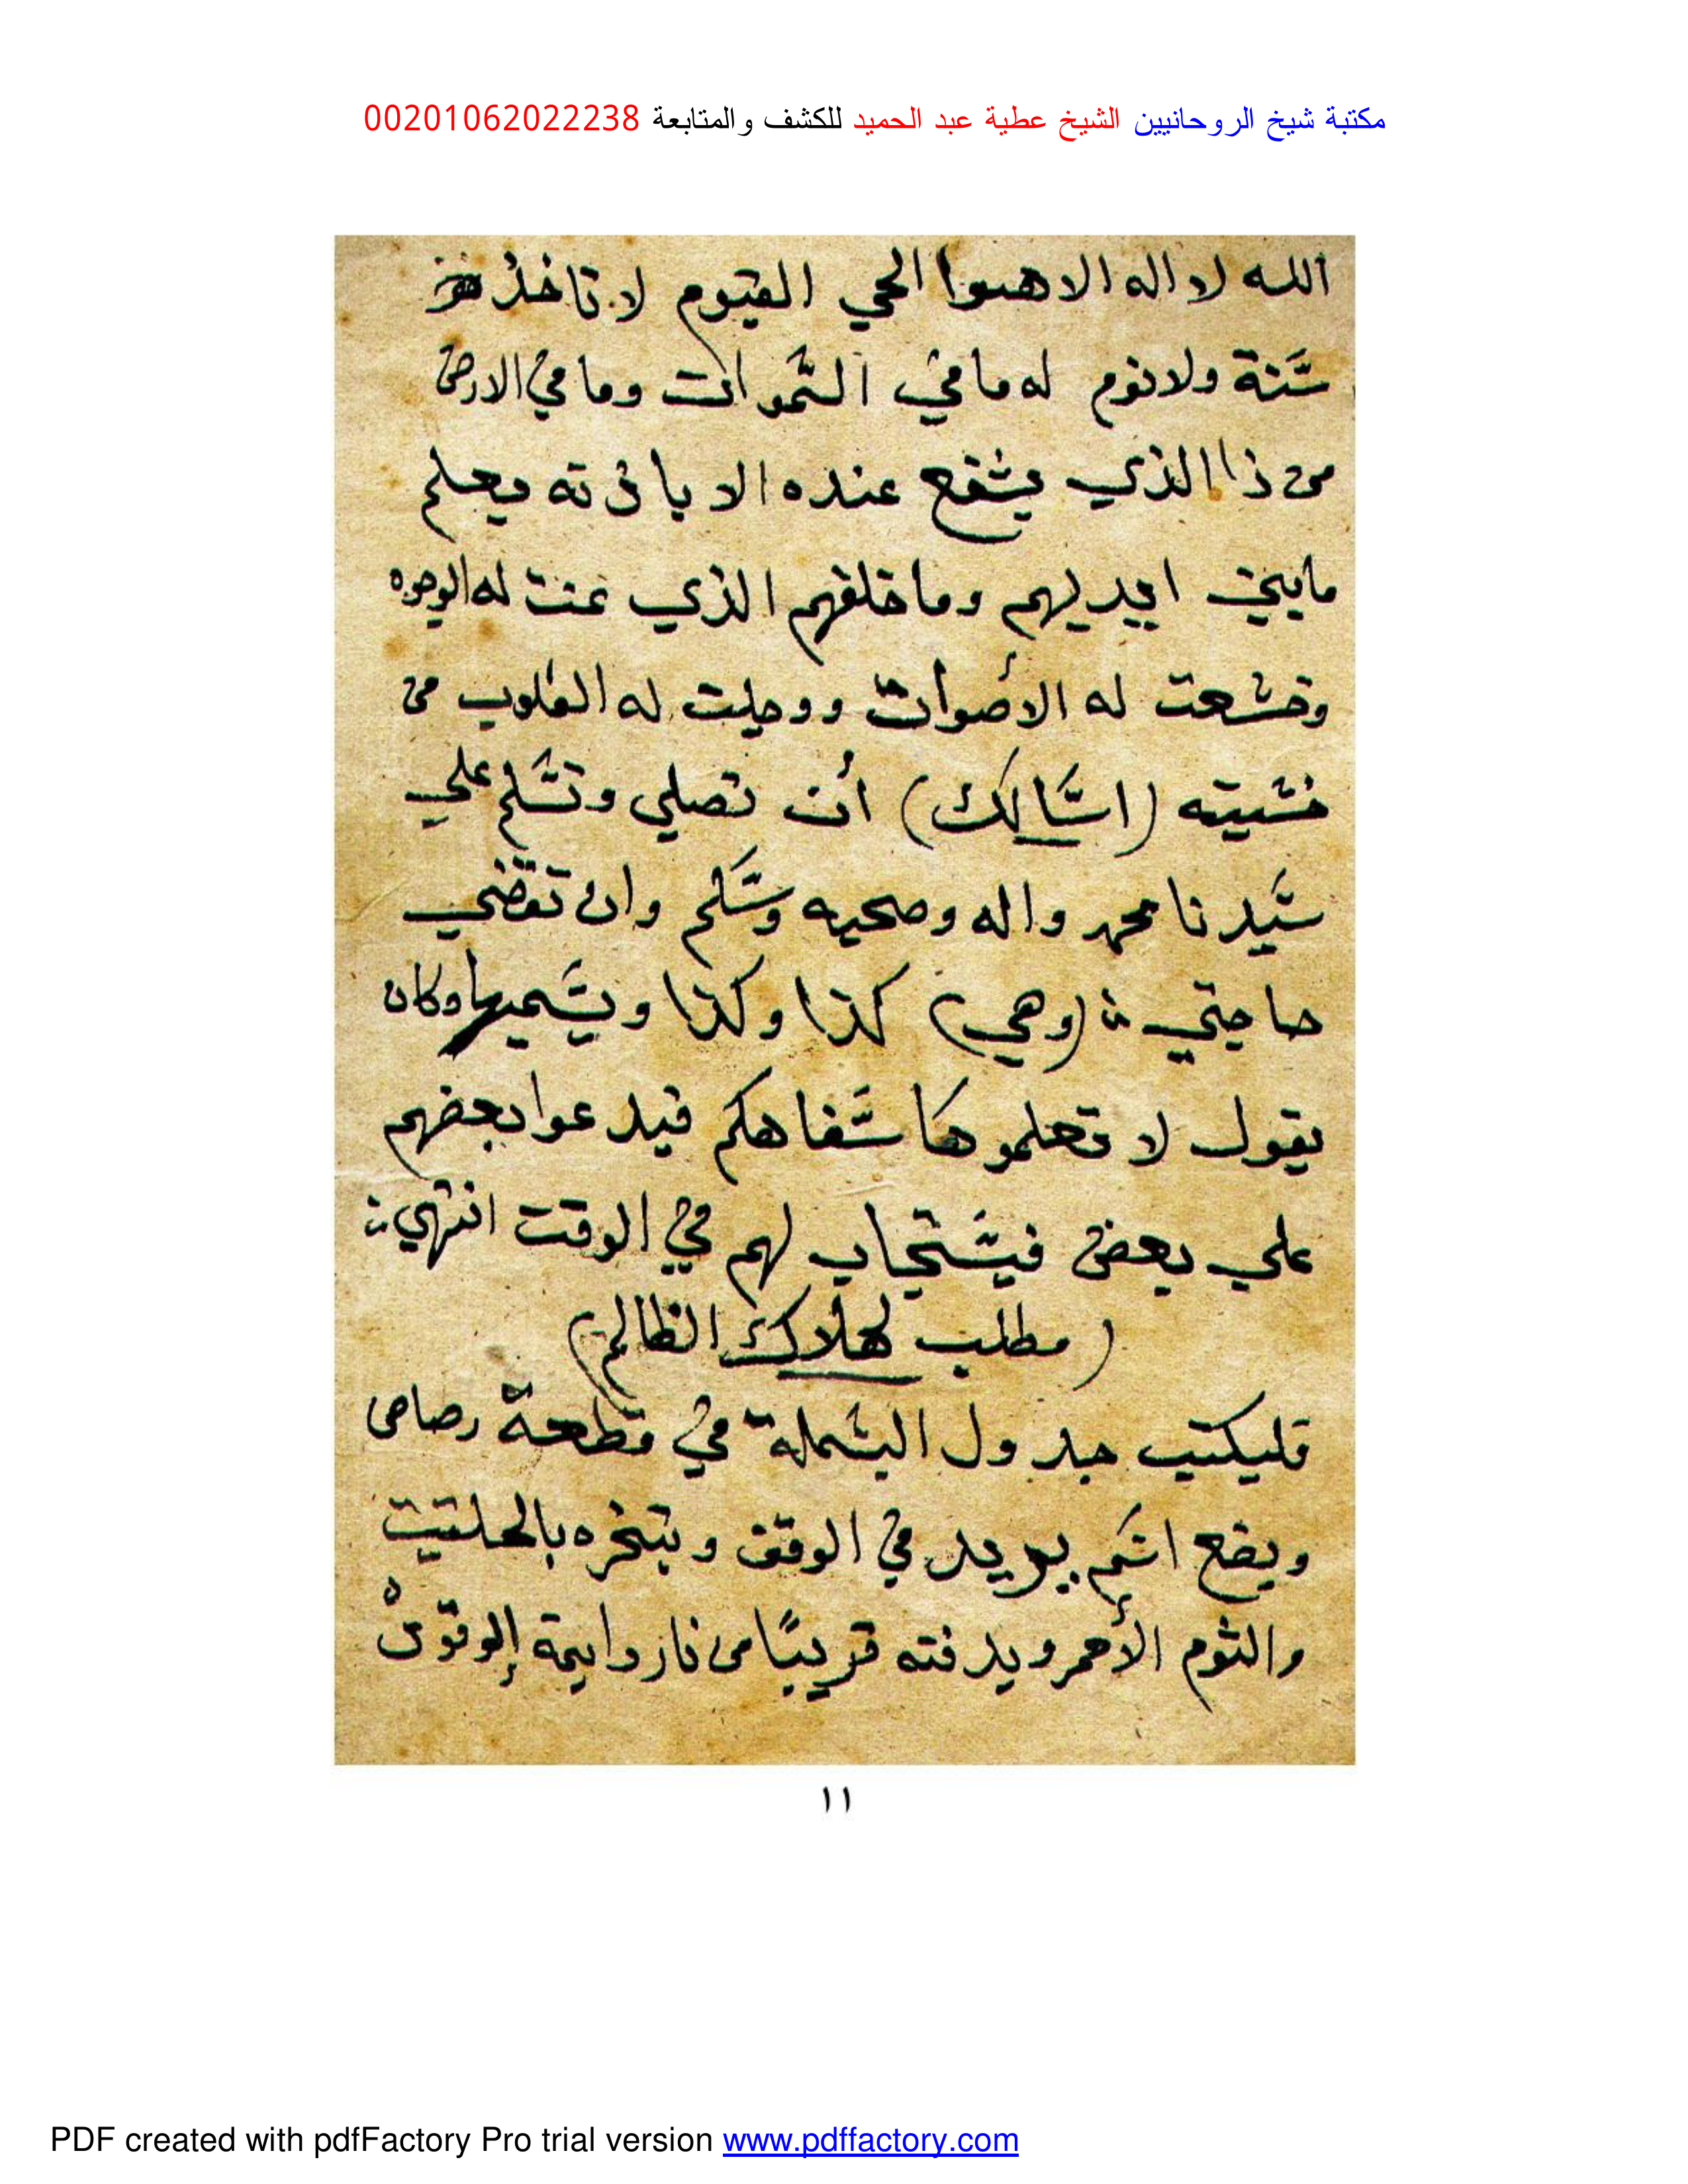 مكتبة شيخ الروحانيين الشيخ عطية عبد الحميد للكشف والمتابعة 00201062022238
الله لا اله الا هوا الحي القيوم لا تاخذ
سنة ولا نوم له ما في السموات وما في الارض
من ذا الذي يشفع عنده الا باذنه يعلم
مابين ايديهم وما خلفهم الذي عنت له الوجوه
وخشعت له الأصوات ووجلت له القلوب من
خشيته (اسالك) أن تصلي وتسلم علي
سيدنا محمد واله وصحبه وسلم وان تقضي
حاجتي (وهي) كذا وكذا ويسميها وكان
يقول لا تعلموها سفاهكم فيدعوا بعضهم
علي بعض فيستجاب لهم في الوقت انتهي
(مطلب لهلاك الظالم)
فليكتب جدول البسملة في قطعة رصاص
ويضع اسم يريد في الوفق وبتخره بالحلتيت
والثوم الأحمر ويدفنه قريبًا من نار دايمة الوقود
١١
PDF created with pdfFactory Pro trial version www.pdffactory.com